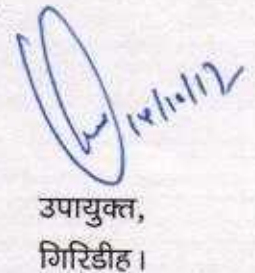 14/10/17
उपायुक्त,
गिरिडीह।